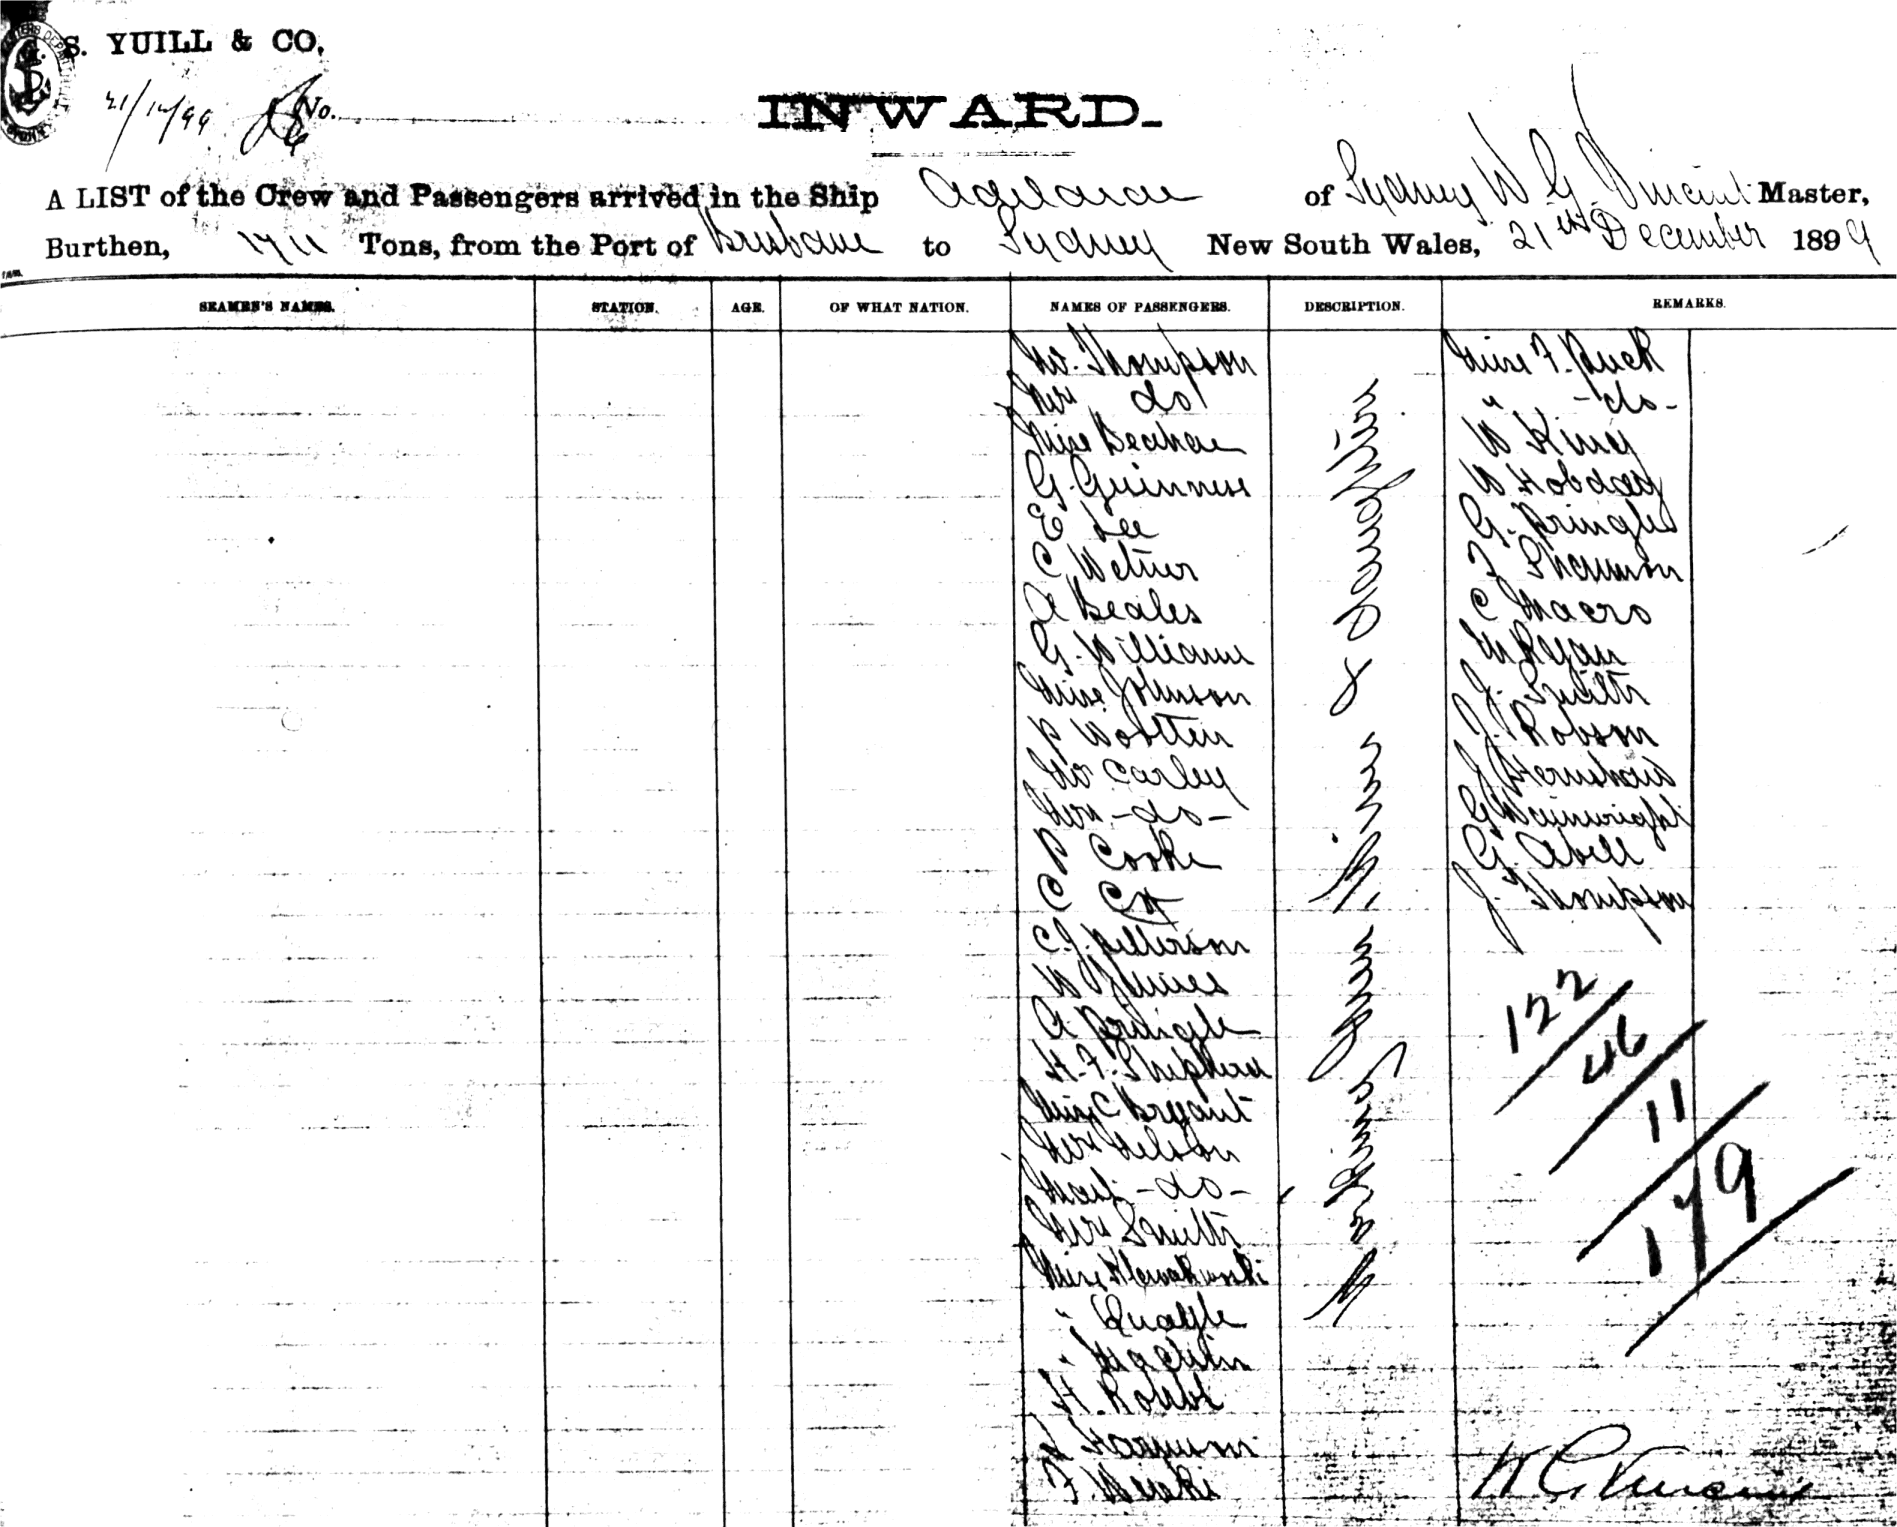 S. YUILL & CO.
21/12/99 No.
INWARD.
A LIST of the Crew and Passengers arrived in the Ship Adelaide of Sydney W G Vincent Master,
Burthen, 1711 Tons, from the Port of Brisbane to Sydney New South Wales, 21st December 1899
SEAMEN'S NAMES. STATION. AGE. OF WHAT NATION. NAMES OF PASSENGERS. DESCRIPTION. REMARKS.
Mr. Thompson
Mrs do
Miss
G. Guinness
E Lee
C
A Beales
G. Williams
Miss Johnson
P Wootten
Mr Carley
Mrs -do-
P Cooke
C Cox
C.J. Petterson
W
A. Pringle
H. F. Shepherd
Miss C Bryant
Mrs Nelson
-do-
Mrs Smith
Miss
" Quayle
"
H.
F.
Miss F. Buck
" -do-
W King
W Hobday
G. Pringle
F Shannon
C Macro
M Ryan
J. Smith
J. Robson
J
G Wainwright
G. Abell
J. Thompson
122
46
11
179
W G Vincent